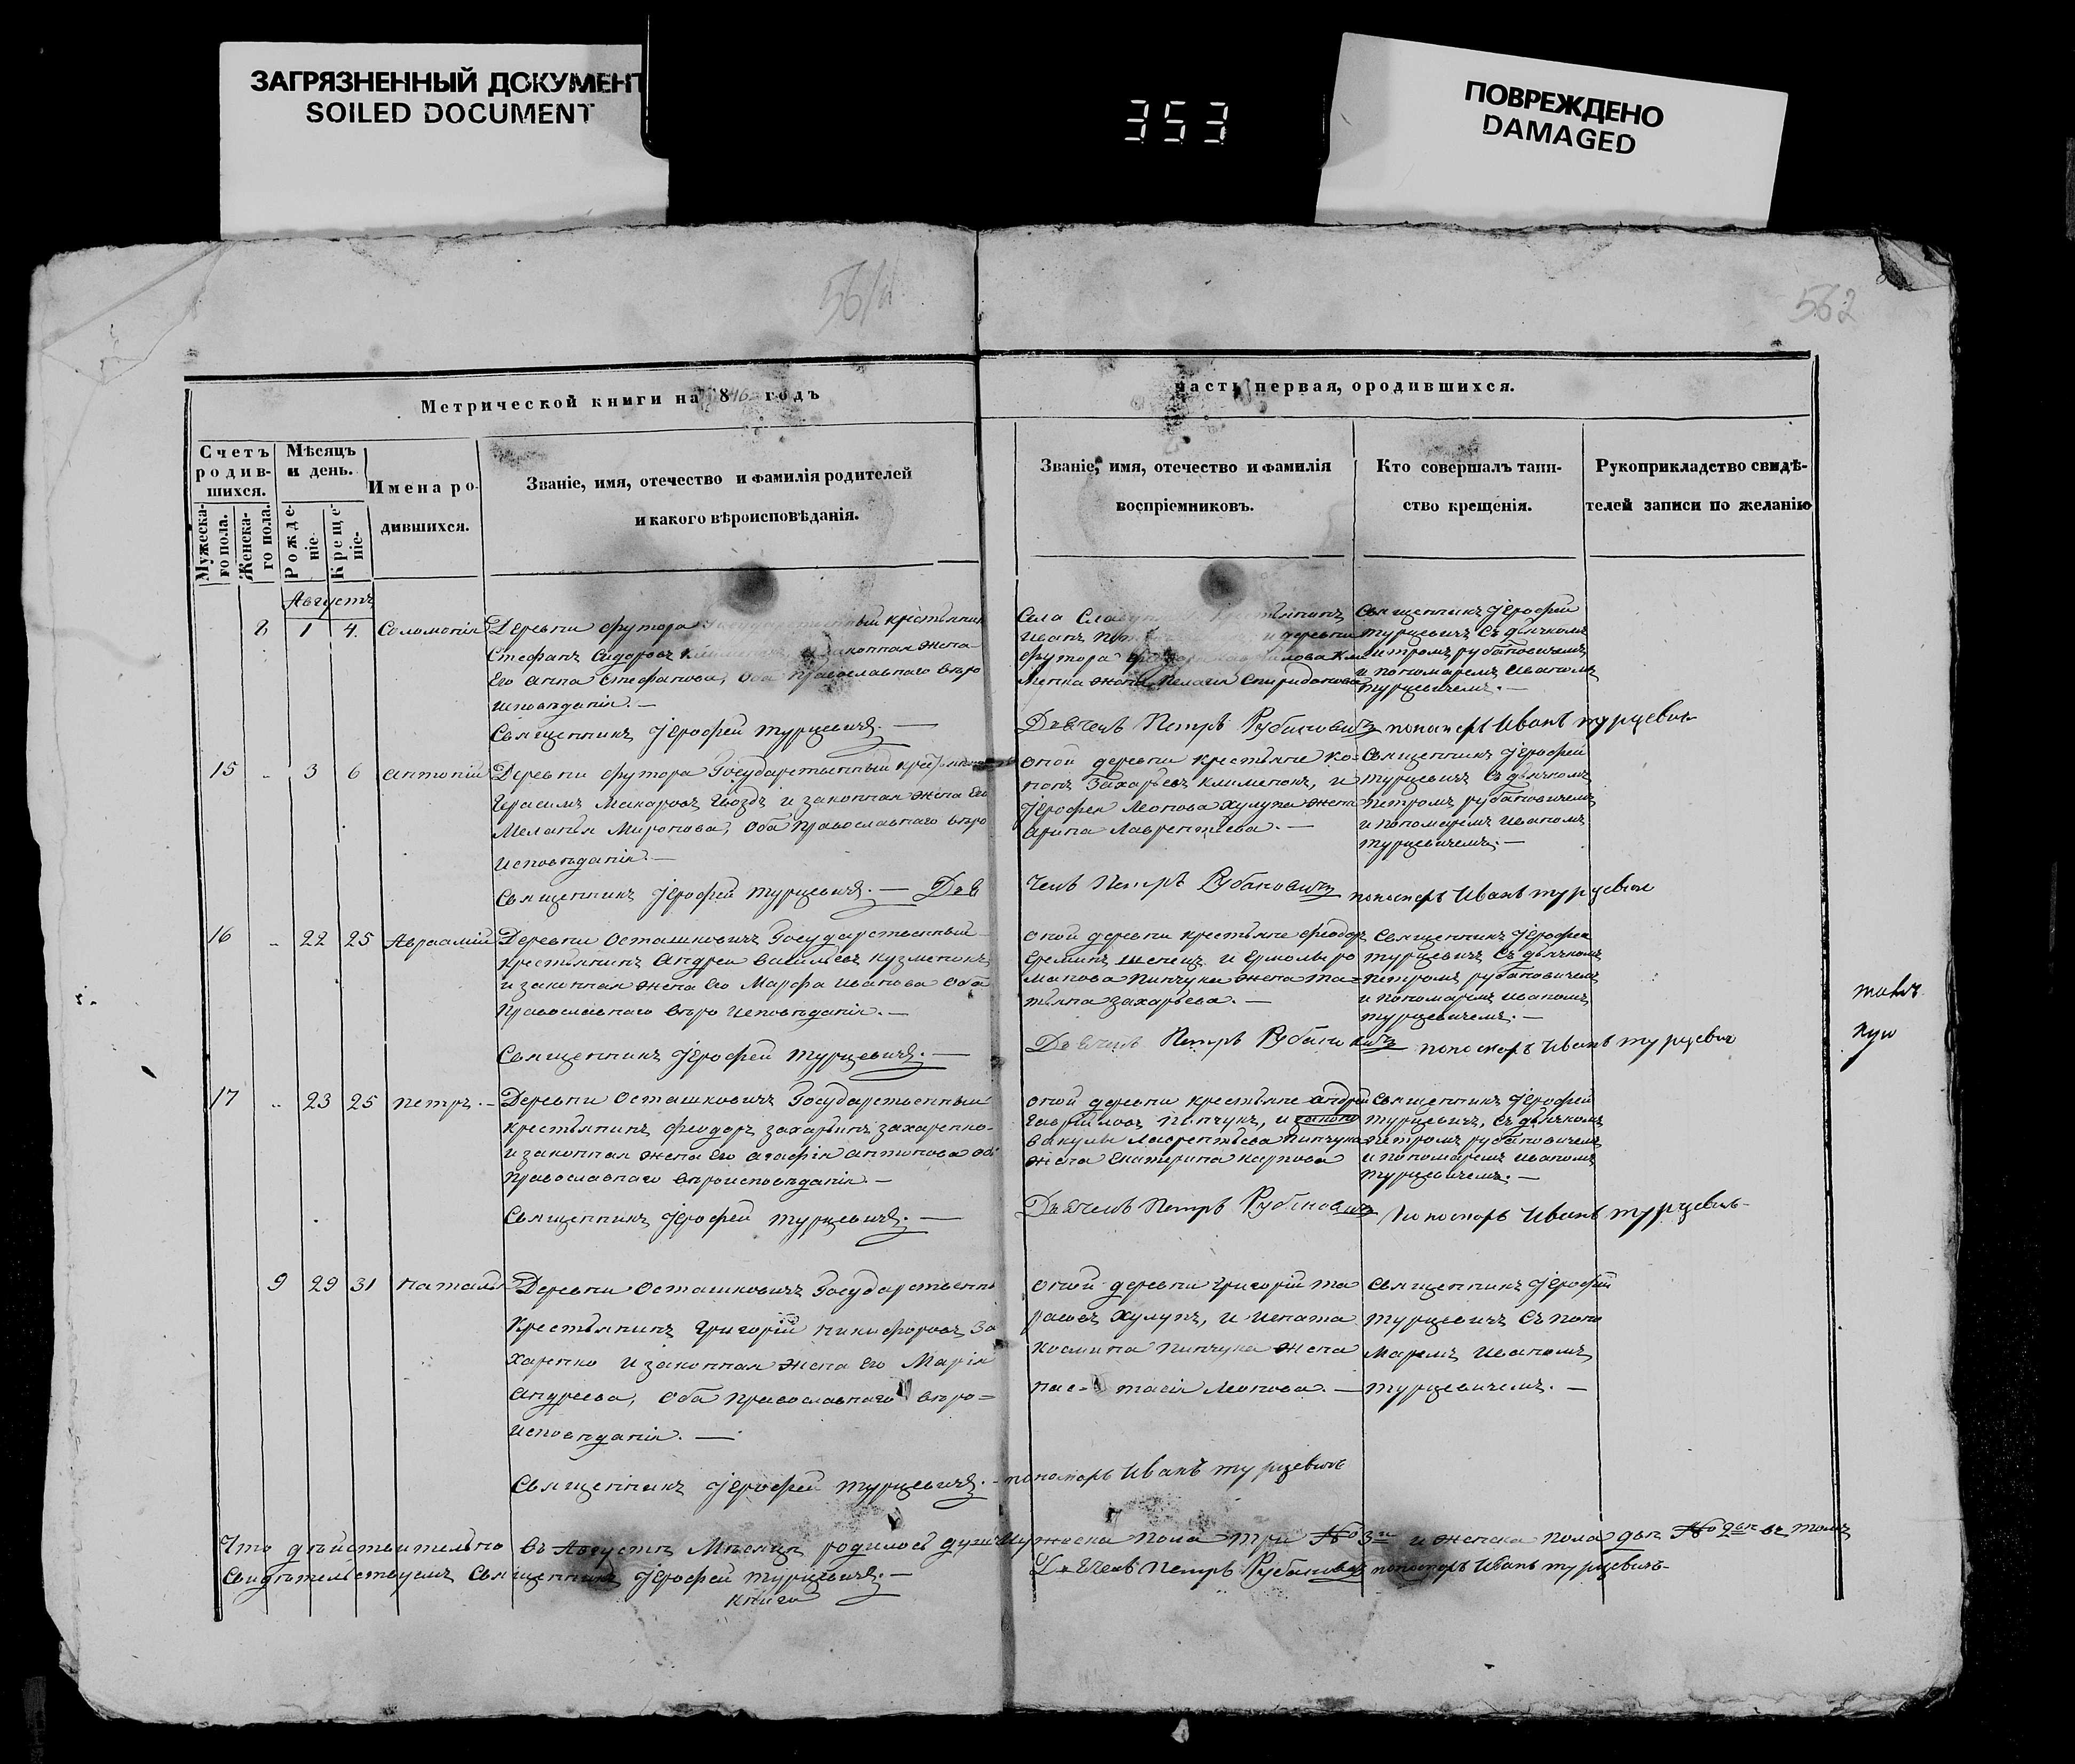 ЗАГРЯЗНЕННЫЙ ДОКУМЕНТ
SOILED DOCUMENT
353
ПОВРЕЖДЕНО
DAMAGED
562
Метрической книги на 1846 годъ
часть первая, ородившихся.
Счетъ родив-шихся.
Мужеска-го пола.
Женска-го пола.
Мѣсяцъ и день.
Рожде-ніе.
Креще-ніе.
Имена ро-дившихся.
Званіе, имя, отечество и фамилія родителей
и какого вѣроисповѣданія.
Званіе, имя, отечество и фамилія
воспріемниковъ.
Кто совершалъ таин-
ство крещенія.
Рукоприкладство свидѣ-
телей записи по желанію
Августъ
8 1 4. Соломонія
Деревни Футора Государственный крестьянин
Стефанъ Сидоровъ законная жена
Его Анна Стефанова, оба Православнаго вѣро
исповѣданія. —
Священникъ Іерофей Турцевичъ. —
Села крестьянинъ
Иванъ и деревни
Футора Кли
менка жена Пелагия Спиридонова
Священникъ Іерофей
Турцевичъ съ дьячкомъ
Петромъ Рубановичемъ
и пономаремъ Иваномъ
Турцевичемъ. —
Дьячекъ Петръ Рубановичъ пономарь Иванъ Турцевичъ
15 „ 3 6 Антоній
Деревни Футора Государственный крестьянинъ
Герасимъ Макаровъ Гвоздь и законная жена Его
Меланья Миронова, оба Православнаго вѣро
исповѣданія. —
Священникъ Іерофей Турцевичъ. — Дья
оной деревни крестьяне Ко-
нонъ Захарьевъ Клименокъ, и
Іерофея Леонова Хулупа жена
Арина Лаврентіева. —
Священникъ Іерофей
Турцевичъ съ дьячкомъ
Петромъ Рубановичемъ
и пономаремъ Иваномъ
Турцевичемъ. —
чекъ Петръ Рубановичъ пономарь Иванъ Турцевичъ
16 „ 22 25 Авраамій
Деревни Осташковичъ Государственный
крестьянинъ Андрей Васильевъ Кузменокъ
и законная жена Его Марфа Иванова оба
Православнаго вѣро исповѣданія. —
Священникъ Іерофей Турцевичъ. —
оной деревни крестьяне Феодоръ
Ереминъ Шенецъ и Ермолы Ро
манова Пинчука жена Та=
тьяна Захарьева. —
Священникъ Іерофей
Турцевичъ съ дьячкомъ
Петромъ Рубановичемъ
и пономаремъ Иваномъ
Турцевичемъ. —
Дьячекъ Петръ Рубановичъ пономарь Иванъ Турцевич
17 „ 23 25 Петръ. —
Деревни Осташковичъ Государственный
крестьянинъ Феодоръ Захарьинъ Захаренко
и законная жена Его Агафія Антонова оба
Православнаго вѣроисповѣданія. —
Священникъ Іерофей Турцевичъ. —
оной деревни крестьяне Андрей
Гаврійловъ Пинчукъ, и
Вакулы Лаврентьева Пинчука
жена Екатерина Карпова
Священникъ Іерофей
Турцевичъ, съ дьячкомъ
Петромъ Рубановичемъ
и пономаремъ Иваномъ
Турцевичемъ. —
Дьячекъ Петръ Рубановичъ пономарь Иванъ Турцевичъ
9 29 31 Наталья
Деревни Осташковичъ Государственный
Крестьянинъ Григорій Никифоровъ За
харенко и законная жена Его Марія
Андреева, оба Православнаго вѣро=
исповѣданія. —
Священникъ Іерофей Турцевичъ. — пономарь Иванъ Турцевичъ
оной деревни Григорій Та
расовъ Хулупъ, и Игната
Космина Пинчука жена
Нас- тасія Леонова. —
Священникъ Іерофей
Турцевичъ съ поно
маремъ Иваномъ
Турцевичемъ. —
Что дѣйствительно въ Августѣ Мѣсяцѣ родилось душъ Мужеска пола три № 3и и женска пола двѣ № 2вѣ въ томъ
Свидѣтельствуемъ Священникъ Іерофей Турцевичъ. —
Дьячекъ Петръ Рубановичъ пономарь Иванъ Турцевичъ